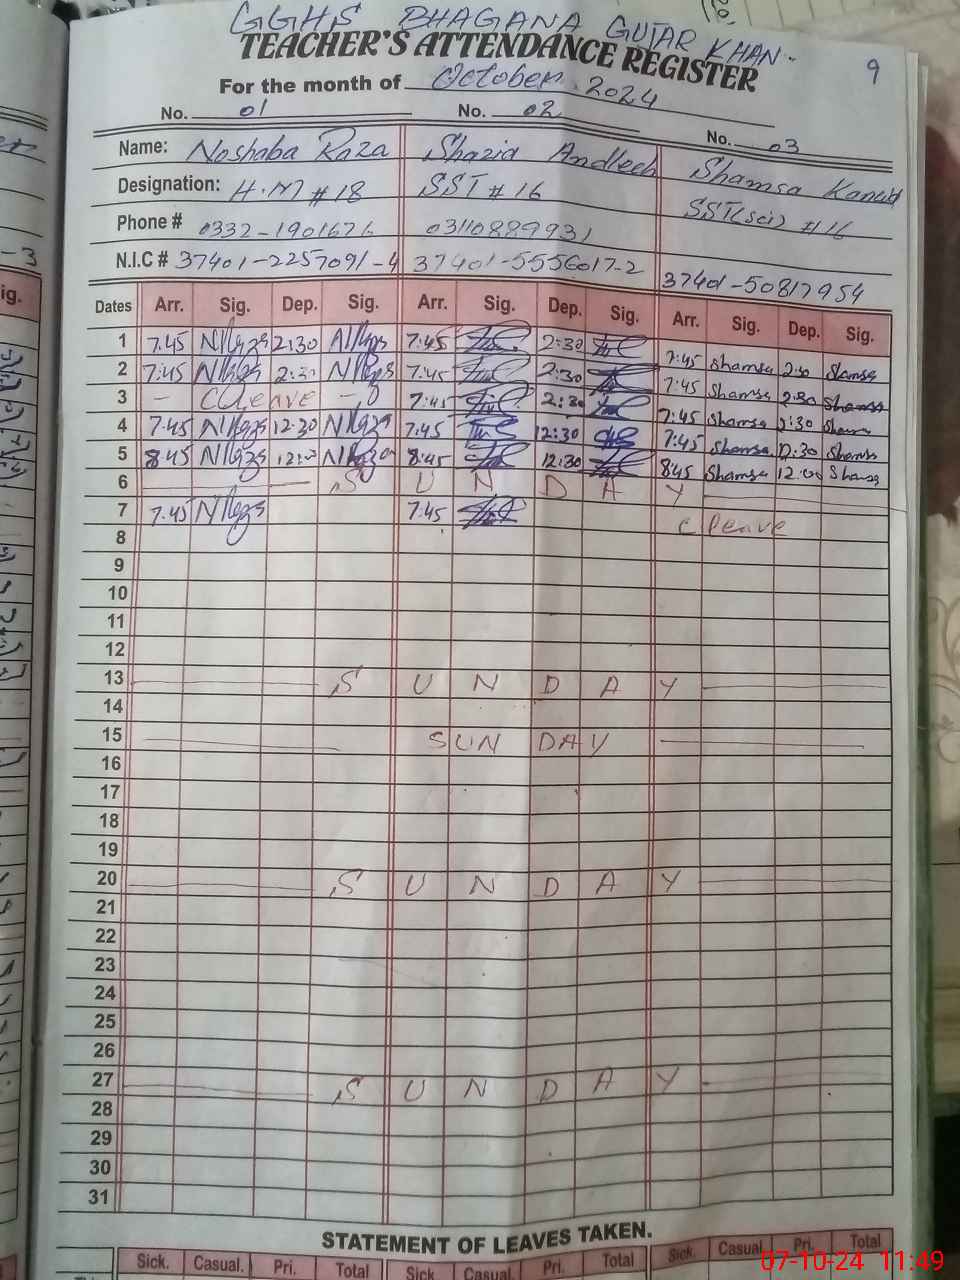 GGHS BHAGANA GUJAR KHAN
TEACHER'S ATTENDANCE REGISTER 9
For the month of October 2024
No. 01 No. 02 No. 03
Name: Noshaba Raza Shazia Andleeb Shamsa Kanwal
Designation: H.M # 18 SST # 16 SST(sci) # 16
Phone # 0332-1901676 03110889931
N.I.C # 37401-2257091-4 37401-5556017-2 37401-50817954
Dates Arr. Sig. Dep. Sig. Arr. Sig. Dep. Sig. Arr. Sig. Dep. Sig.
1 7.45 2:30 7:45 2:30 7:45 Shamsa 2:30 Shamsa
2 7:45 2:30 7:45 2:30 7:45 Shamsa 2:30 Shamsa
3 - C Leave - 7:45 2:30 7:45 Shamsa 2:30 Shamsa
4 7.45 12.30 7:45 12:30 7:45 Shamsa 12:30 Shamsa
5 8:45 8:45 12:30 8:45 Shamsa 12:00 Shamsa
6 S U N D A Y
7 7.45 7:45 C Leave
8
9
10
11
12
13 S U N D A Y
14
15 SUN DAY
16
17
18
19
20 S U N D A Y
21
22
23
24
25
26
27 S U N D A Y
28
29
30
31
STATEMENT OF LEAVES TAKEN.
Sick. Casual. Pri. Total Sick. Casual. Pri. Total Sick. Casual Pri. Total
07-10-24 11:49